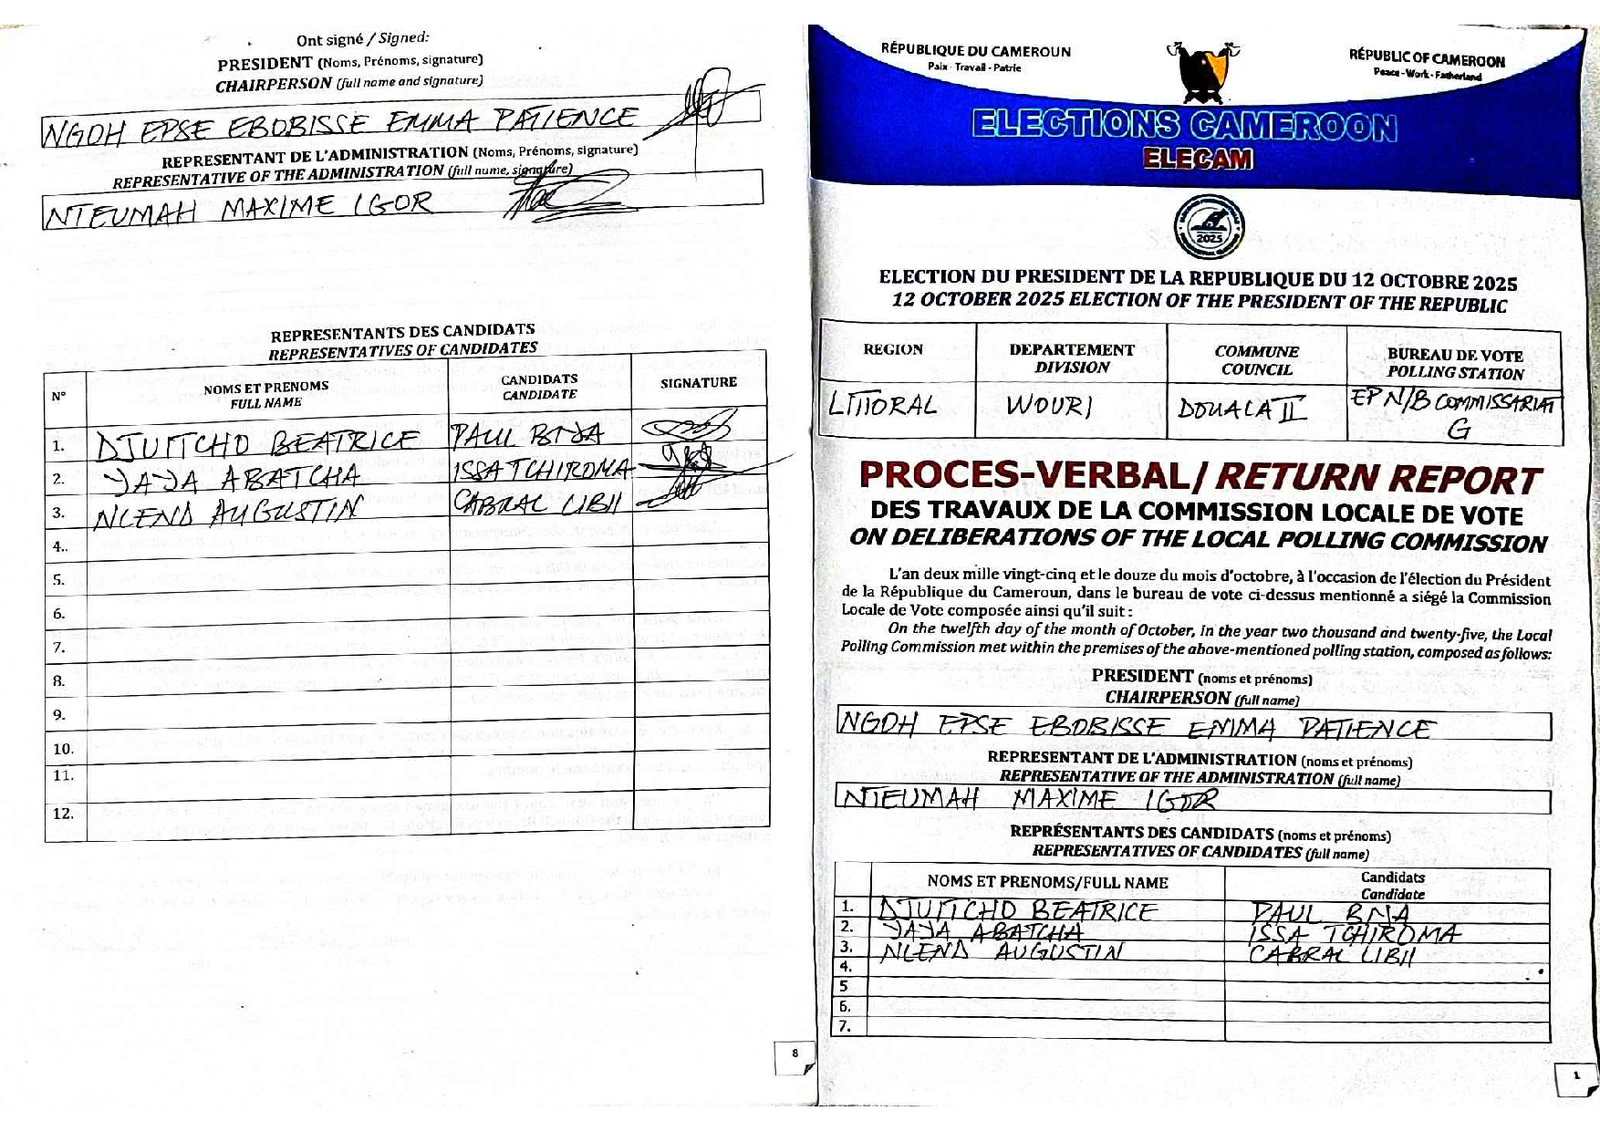 Ont signé / Signed:
PRESIDENT (Noms, Prénoms, signature)
CHAIRPERSON (full name and signature)
NGOH EPSE EBOBISSE EMMA PATIENCE
REPRESENTANT DE L'ADMINISTRATION (Noms, Prénoms, signature)
REPRESENTATIVE OF THE ADMINISTRATION (full name, signature)
NTEUMAH MAXIME IGOR
REPRESENTANTS DES CANDIDATS
REPRESENTATIVES OF CANDIDATES
N° NOMS ET PRENOMS FULL NAME CANDIDATS CANDIDATE SIGNATURE
1. DJUITCHO BEATRICE PAUL BIYA
2. YAYA ABATCHA ISSA TCHIROMA
3. NLEND AUGUSTIN CABRAL LIBII
4..
5.
6.
7.
8.
9.
10.
11.
12.
8
RÉPUBLIQUE DU CAMEROUN
Paix - Travail - Patrie
RÉPUBLIC OF CAMEROON
Peace - Work - Fatherland
ELECTIONS CAMEROON
ELECAM
2025
ELECTION DU PRESIDENT DE LA REPUBLIQUE DU 12 OCTOBRE 2025
12 OCTOBER 2025 ELECTION OF THE PRESIDENT OF THE REPUBLIC
REGION DEPARTEMENT DIVISION COMMUNE COUNCIL BUREAU DE VOTE POLLING STATION
LITTORAL WOURI DOUALA II EP N/B COMMISSARIAT G
PROCES-VERBAL/ RETURN REPORT
DES TRAVAUX DE LA COMMISSION LOCALE DE VOTE
ON DELIBERATIONS OF THE LOCAL POLLING COMMISSION
L'an deux mille vingt-cinq et le douze du mois d'octobre, à l'occasion de l'élection du Président
de la République du Cameroun, dans le bureau de vote ci-dessus mentionné a siégé la Commission
Locale de Vote composée ainsi qu'il suit :
On the twelfth day of the month of October, in the year two thousand and twenty-five, the Local
Polling Commission met within the premises of the above-mentioned polling station, composed as follows:
PRESIDENT (noms et prénoms)
CHAIRPERSON (full name)
NGOH EPSE EBOBISSE EMMA PATIENCE
REPRESENTANT DE L'ADMINISTRATION (noms et prénoms)
REPRESENTATIVE OF THE ADMINISTRATION (full name)
NTEUMAH MAXIME IGOR
REPRÉSENTANTS DES CANDIDATS (noms et prénoms)
REPRESENTATIVES OF CANDIDATES (full name)
NOMS ET PRENOMS/FULL NAME Candidats Candidate
1. DJUITCHO BEATRICE PAUL BIYA
2. YAYA ABATCHA ISSA TCHIROMA
3. NLEND AUGUSTIN CABRAL LIBII
4.
5
6.
7.
1